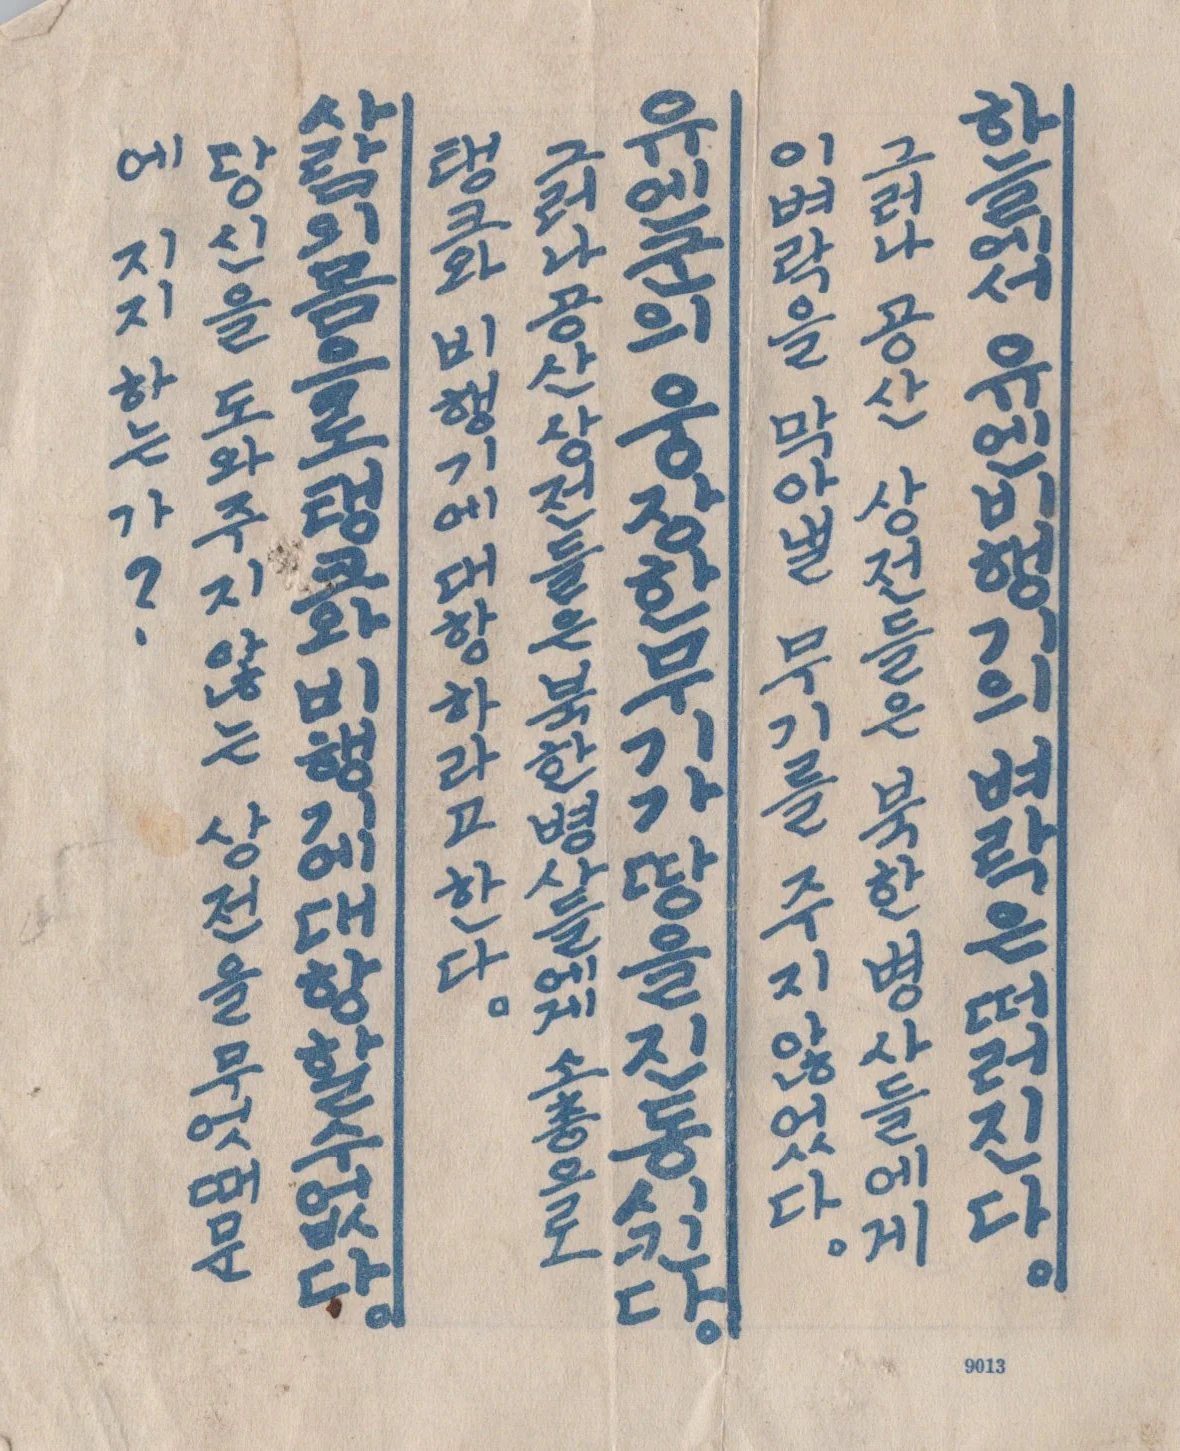 하늘에서 유엔비행기의 벼락은 떠러진다。
그러나 공산 상전들은 북한병사들에게
이벼락을 막아낼 무기를 주지않었다。
유엔군의 웅장한무기가 땅을진동식킨다。
그러나공산상전들은북한병사들에게 소총으로
탱크와 비행기에대항하라고한다。
사람의몸으로 탱크와 비행기에대항할수없다。
당신을 도와주지않는 상전을무엇때문
에 지지하는가?
9013